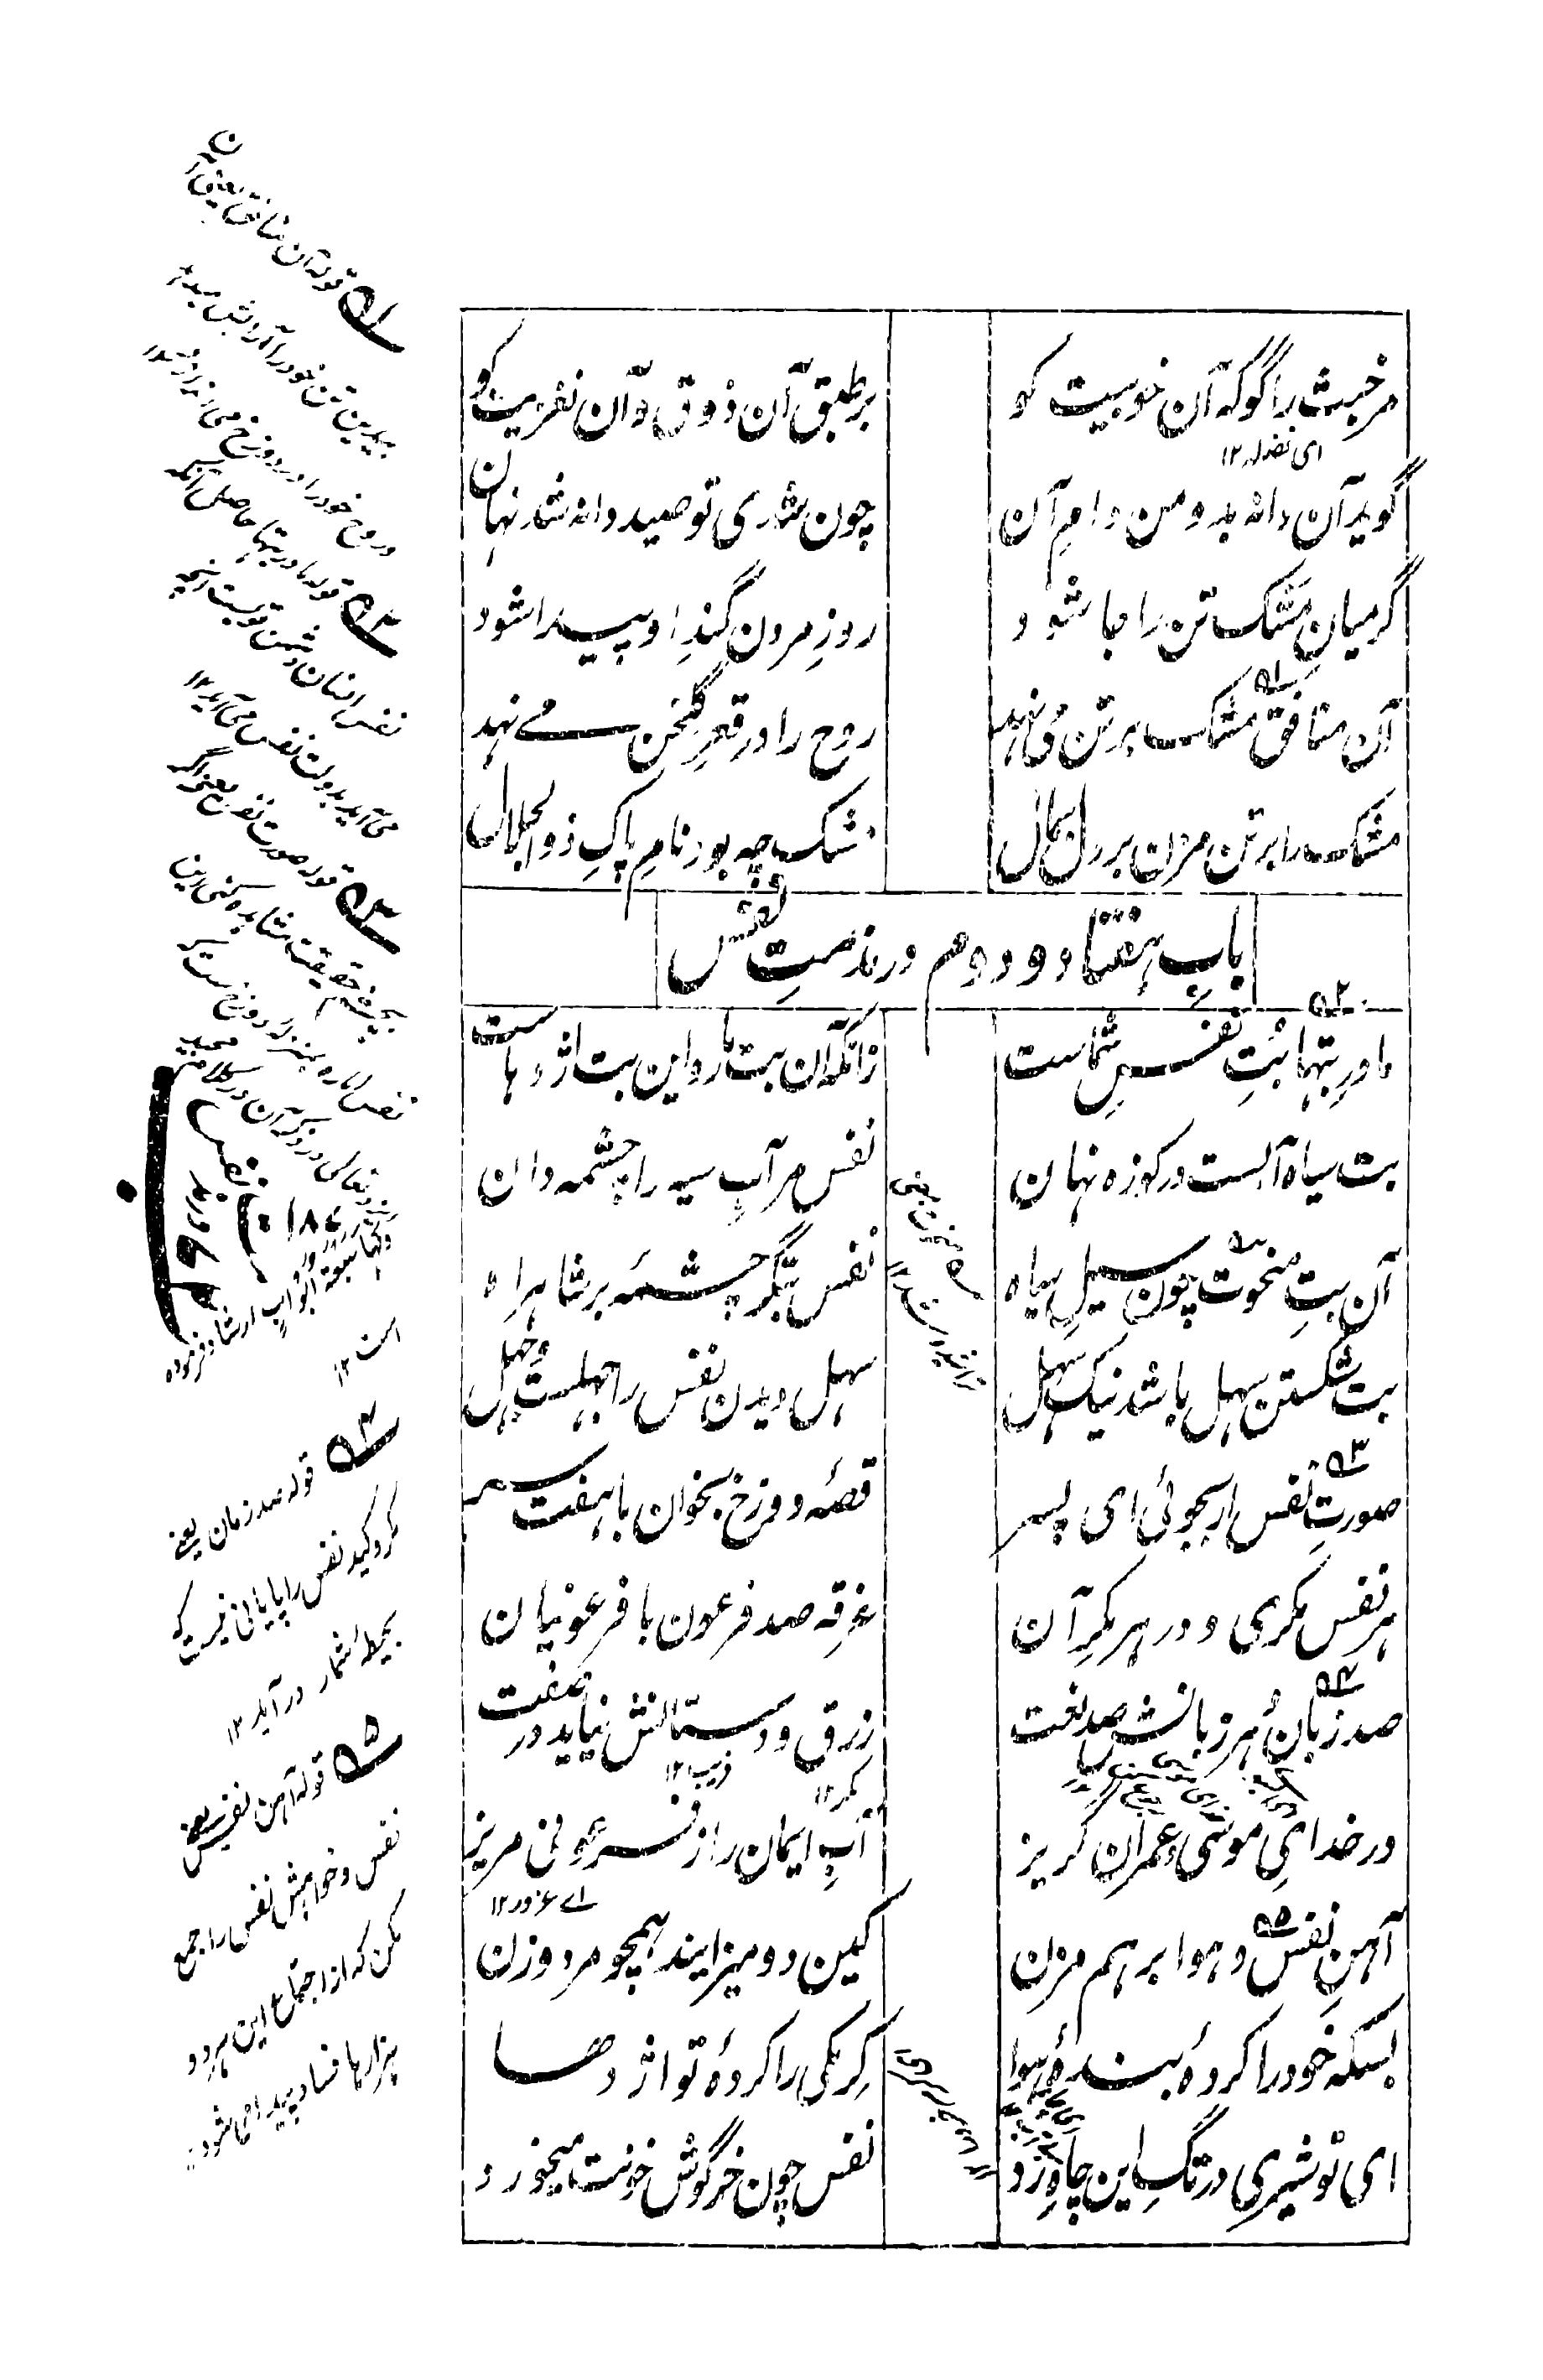 مر خبث را گو که آن خوبیت کو
بر طبق آن ذوق و آن نغزیت کو
ای فضله ۱۲
گوید آن دانه بد و من دام آن
چون شدی تو صید دانه شد نهان
گر میان مشک تن را جا شود
روزِ مردن گندِ او پیدا شود
آن منافق مشک بر تن می نهد
روح را در قعرِ گلخن می نهد
مشک را بر تن مزن بر دل بمال
مشک چه بود نامِ پاکِ ذوالجلال
بابِ هفتاد و دوم در مذمتِ نفس
مادرِ بتها بُتِ نفسِ شماست
زانکه آن بت مار و این بت اژدهاست
بت سیاه آبست در کوزه نهان
نفس مر آبِ سیه را چشمه دان
آن بتِ منحوت چون سیلِ سیاه
نفس بتگر چشمهٔ بر شاهراه
بت شکستن سهل باشد نیک سهل
سهل دیدن نفس را جهلست جهل
صورتِ نفس ار بجوئی ای پسر
قصهٔ دوزخ بخوان با هفت سر
هر نفس مکری و در هر مکرِ آن
غرقه صد فرعون با فرعونیان
صد زبان و هر زبانش صد لغت
زرق و دستانش نیاید در صفت
مکر ۱۲
فریب ۱۲
در خدایِ موسی و عمران گریز
آبِ ایمان را ز فرعونی مریز
اے غرور ۱۲
آهنِ نفس و هوا بر هم مزن
کین دو میزایند همچو مرد و زن
بسکه خود را کردهٔ بندهٔ هوا
کرمکی را کردهٔ تو اژدها
ای تو شیری در تگِ این چاهِ زد
نفس چون خرگوش خونت میخورد
۵۱ قوله آن منافق یعنی آن
قوله مادر بتها حاصل آنکه
نفس انسان دشمن قویست آنچه
می آید بدولت نفس می آید ۱۲
۵۳ قوله صورت نفس یعنی اگر
بچشم حقیقت مشاهده کنی این
نفس اماره بمنزله دوزخ ست که
لها سبعة ابواب ارشاد فرموده
است ۱۲
۵۴ قوله صد زبان یعنی
مکر و کید نفس را پایانی نیست که
بحیطهٔ شمار در آید ۱۲
۵۵ قوله آهن نفس یعنی
نفس و خواهش نفس را جمع
مکن که از اجتماع این هر دو
هزارها فساد پیدا می شود